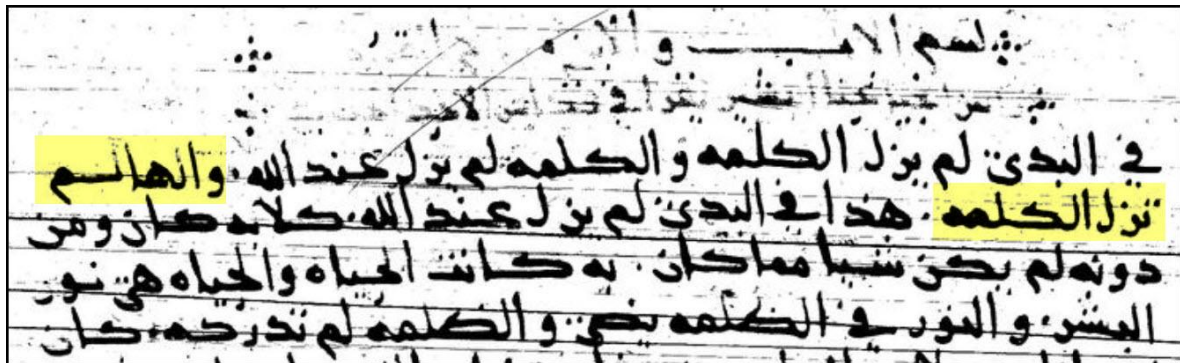 بسم الاب و الابن
في البدئ لم يزل الكلمه و الكلمه لم يزل عند الله. والها لم
تزل الكلمه. هذا في البدئ لم يزل عند الله. كلا به كان ومن
دونه لم يكن شيا مما كان. به كانت الحياه والحياه هي نور
البشر. و النور في الظلمه يضي. و الظلمه لم تدركه. كان